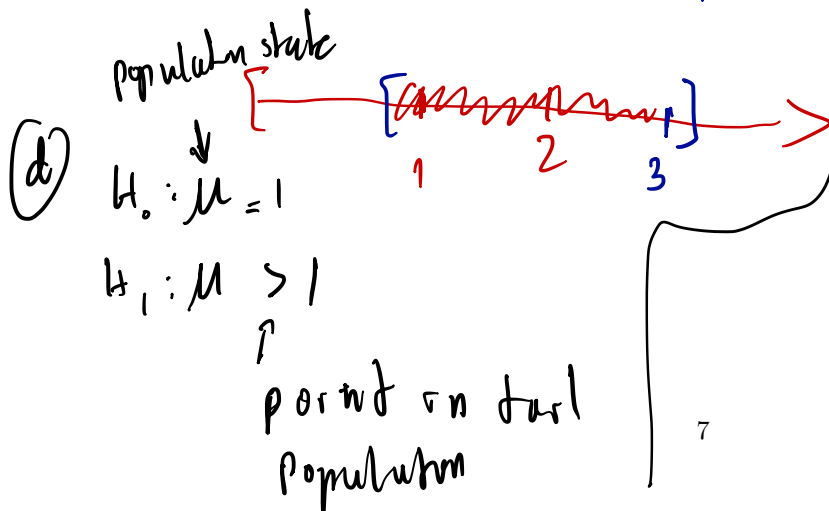 population state
1 2 3
d
H₀ : μ = 1
H₁ : μ > 1
point on tail
population
7